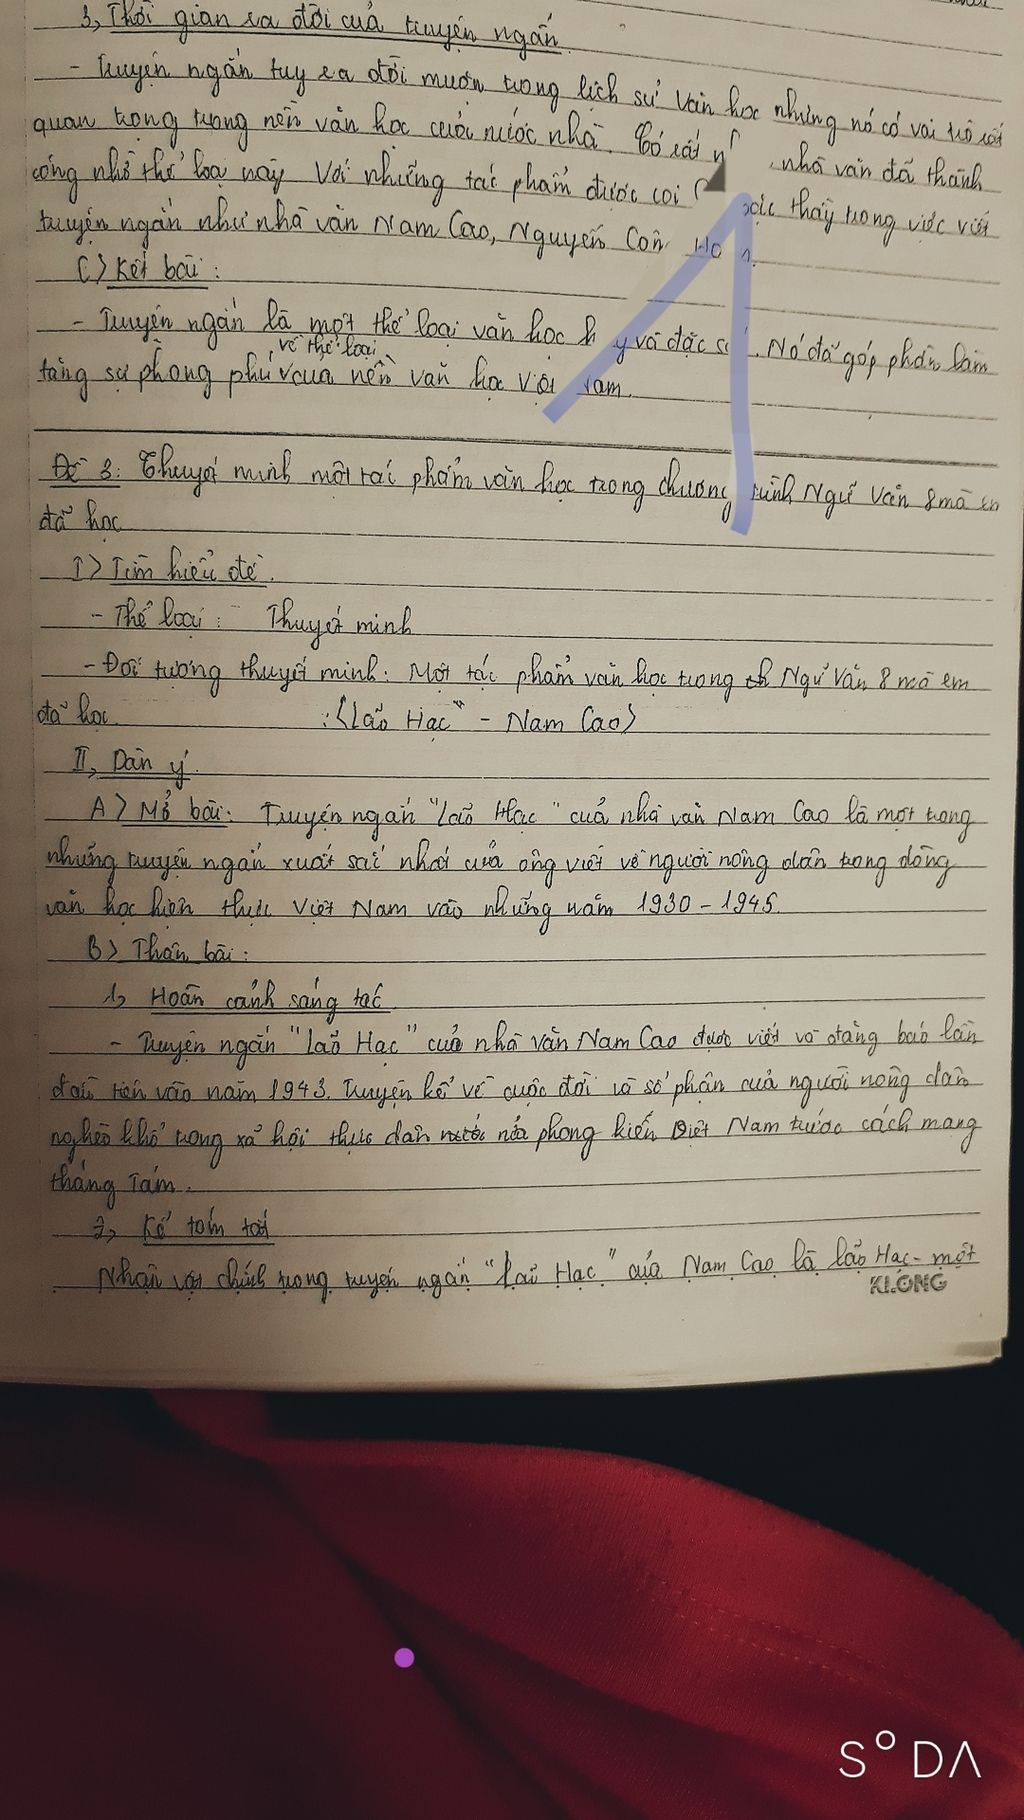 3, Thời gian ra đời của truyện ngắn
- Truyện ngắn tuy ra đời muộn trong lịch sử văn học nhưng nó có vai trò rất
quan trọng trong nền văn học của nước nhà. Có rất nhà văn đã thành
công nhờ thể loại này. Với những tác phẩm được coi thầy trong việc viết
truyện ngắn như nhà văn Nam Cao, Nguyễn
C> Kết bài:
- Truyện ngắn là một thể loại văn học và đặc Nó đã góp phần làm
về thể loại
tăng sự phong phú của nền văn học Việt Nam.
Đề 3: Thuyết minh một tác phẩm văn học trong chương trình Ngữ văn 8 mà em
đã học
I> Tìm hiểu đề
- Thể loại: Thuyết minh
- Đối tượng thuyết minh: Một tác phẩm văn học trong Ngữ Văn 8 mà em
đã học :<Lão Hạc" - Nam Cao>
II, Dàn ý
A> Mở bài: Truyện ngắn "Lão Hạc" của nhà văn Nam Cao là một trong
những truyện ngắn xuất sắc nhất của ông viết về người nông dân trong dòng
văn học hiện thực Việt Nam vào những năm 1930 - 1945.
B> Thân bài:
1, Hoàn cảnh sáng tác
- Truyện ngắn "Lão Hạc" của nhà văn Nam Cao được viết và đăng báo lần
đầu tiên vào năm 1943. Truyện kể về cuộc đời và số phận của người nông dân
nghèo khổ trong xã hội thực dân nửa phong kiến Việt Nam trước cách mạng
tháng Tám.
2, Kể tóm tắt
Nhân vật chính trong truyện ngắn "Lão Hạc" của Nam Cao là lão Hạc - một
KLONG
SODA